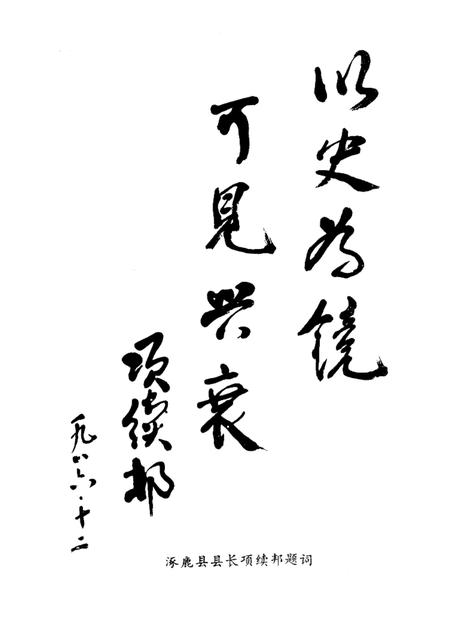 以史为镜
可见兴衰
项续邦
一九八六·十二
涿鹿县县长项续邦题词